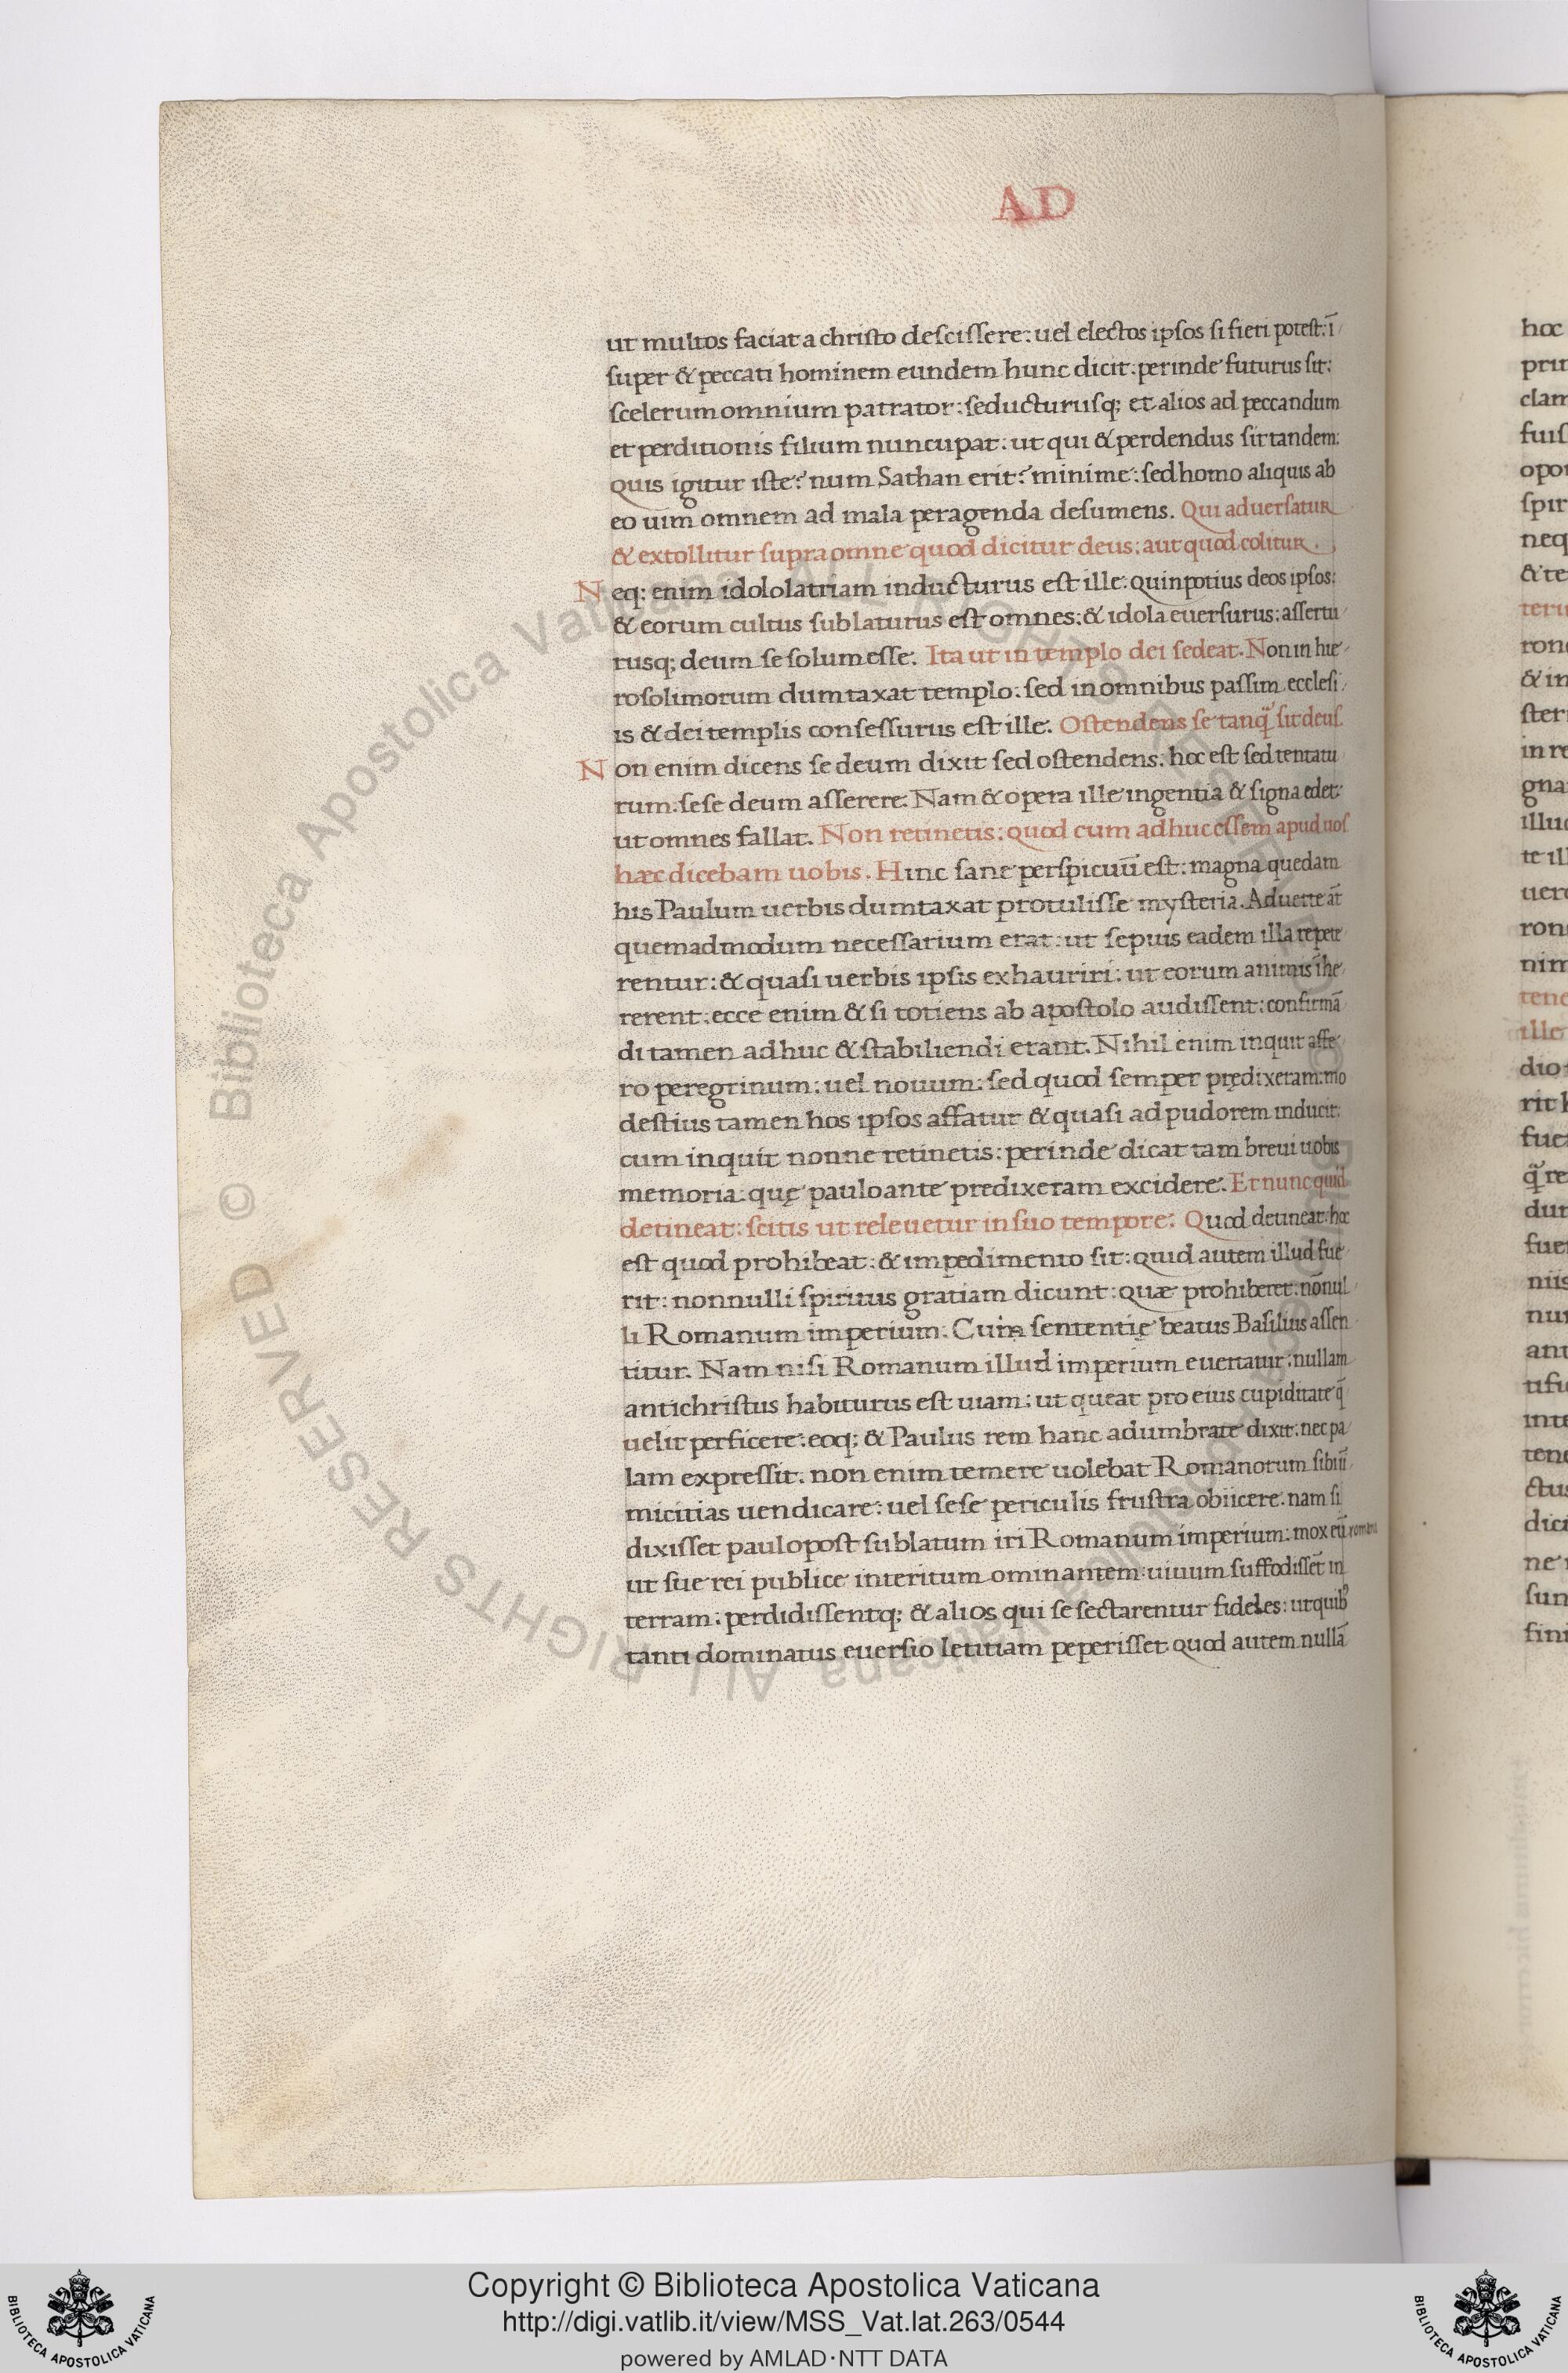 AD
ut multos faciat a christo desciſſere: uel electos ipſos ſi fieri poteſt: ī
ſuper & peccati hominem eundem hunc dicit: perinde futurus ſit:
ſcelerum omnium patrator: ſeducturuſq; et alios ad peccandum
et perditionis filium nuncupat: ut qui & perdendus ſit tandem:
quis igitur iſte? num Sathan erit? minime: ſed homo aliquis ab
eo uim omnem ad mala peragenda deſumens. Qui aduerſatur
& extollitur ſupra omne quod dicitur deus: aut quod colitur.
Neq; enim idololatriam inducturus eſt ille: quin potius deos ipſos:
& eorum cultus ſublaturus eſt omnes: & idola euerſurus: aſſertu
rusq; deum ſe ſolum eſſe. Ita ut in templo dei ſedeat. Non in hie
roſolimorum dumtaxat templo: ſed in omnibus paſſim eccleſi
is & dei templis conſeſſurus eſt ille. Oſtendens ſe tanq̃ ſit deuſ.
Non enim dicens ſe deum dixit ſed oſtendens: hoc eſt ſed tentatu
rum: ſeſe deum aſſerere. Nam & opera ille ingentia & ſigna edet:
ut omnes fallat. Non retinetis: quod cum adhuc eſſem apud uoſ
hæc dicebam uobis. Hinc ſane perſpicuū eſt: magna quedam
his Paulum uerbis dumtaxat protuliſſe myſteria. Aduerte āt
quemadmodum neceſſarium erat: ut ſepuis eadem illa repete
rentur: & quaſi uerbis ipſis exhauriri: ut eorum animis īhe
rerent: ecce enim & ſi totiens ab apoſtolo audiſſent: confirmā
di tamen adhuc & ſtabiliendi erant. Nihil enim inquit affe
ro peregrinum: uel nouum: ſed quod ſemper prędixeram: mo
deſtius tamen hos ipſos affatur & quaſi ad pudorem inducit:
cum inquit nonne retinetis: perinde dicat tam breui uobis
memoria: quę paulo ante predixeram excidere. Et nunc quid
detineat: ſcitis ut releuetur in ſuo tempore. Quod detineat: hoc
eſt quod prohibeat: & impedimento ſit: quid autem illud fue
rit: nonnulli ſpiritus gratiam dicunt: quæ prohiberet: nōnul
li Romanum imperium. Cuiꝰ ſententię beatus Baſilius aſſen
titur. Nam niſi Romanum illud imperium euertatur: nullam
antichriſtus habiturus eſt uiam: ut queat pro eius cupiditate q̄
uelit perficere: eoq; & Paulus rem hanc adumbrate dixit: nec pa
lam expreſſit. non enim temere uolebat Romanorum ſibi iī
micitias uendicare: uel ſeſe periculis fruſtra obiicere. nam ſi
dixiſſet paulo poſt ſublatum iri Romanum imperium: mox eū romani
ut ſue rei publice interitum ominantem: uiuum ſuffodiſſēt in
terram: perdidiſſentq; & alios qui ſe ſectarentur fideles: ut quibꝰ
tanti dominatus euerſio letitiam peperiſſet. quod autem nullā
hoc
clam
opor
ſpir
neq
rono
& in
in re
gna
illud
te ill
uero
nim
tene
ille
fuer
q̃ re
dur
nur
inte
dici
ne
ſun
fini
© Biblioteca Apostolica Vaticana ALL RIGHTS RESERVED © Biblioteca Apostolica Vaticana ALL RIGHTS RESERVED
BIBLIOTECA APOSTOLICA VATICANA
Copyright © Biblioteca Apostolica Vaticana
http://digi.vatlib.it/view/MSS_Vat.lat.263/0544
powered by AMLAD·NTT DATA
BIBLIOTECA APOSTOLICA VATICANA